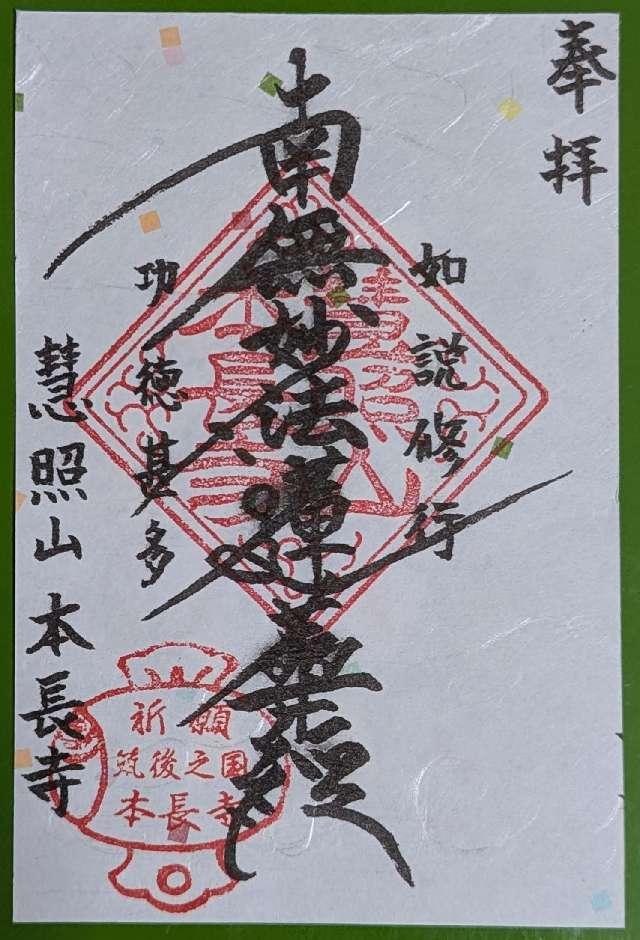 奉拝
如説修行
南無妙法蓮華経
功徳甚多
慧照山本長寺
慧照山
本長寺
祈願
筑後之国
本長寺